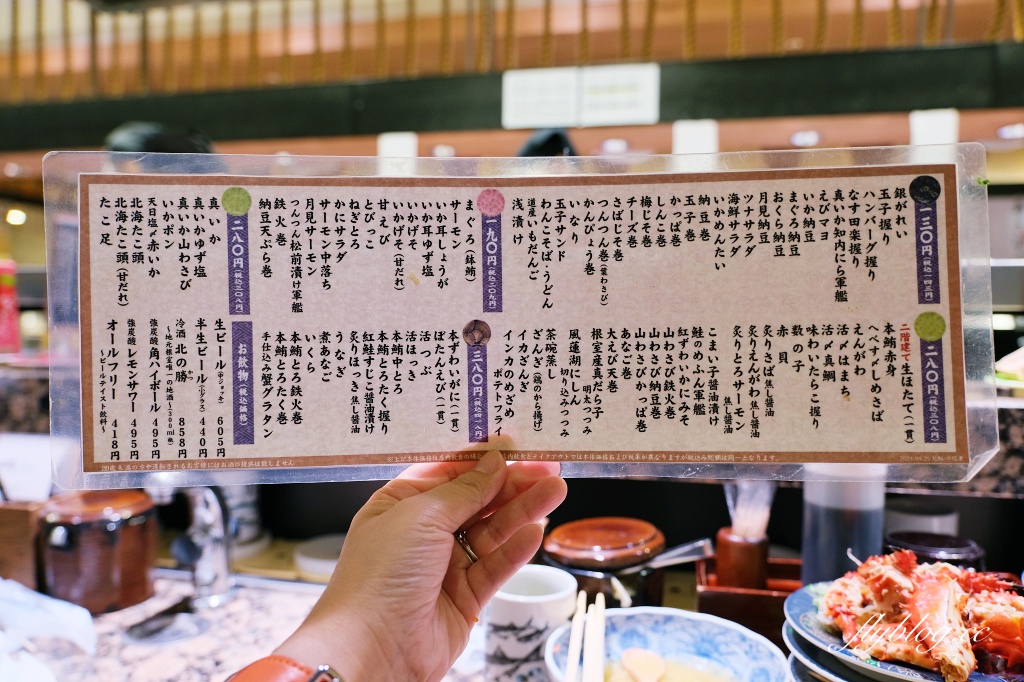 一三〇円(税込一四三円)
銀がれい
玉子握り
ハンバーグ握り
なす田楽握り
真いか知内にら軍艦
えびマヨ
いか納豆
まぐろ納豆
おくら納豆
月見納豆
ツナサラダ
海鮮サラダ
いかめんたい
納豆巻
玉子巻
かっぱ巻
しんこ巻
梅じそ巻
チーズ巻
さばじそ巻
かんぴょう巻
つんつん巻(葉わさび)
いなり
玉子サンド
わんこそば・うどん
道産いもだんご
浅漬け
一九〇円(税込二〇九円)
まぐろ(鉢鮪)
サーモン
いか耳しょうが
いか耳ゆず塩
いかげそ
いかげそ(甘だれ)
甘えび
とびっこ
ねぎとろ
かにサラダ
サーモン中落ち
月見サーモン
つんつん松前漬け軍艦
鉄火巻
納豆天ぷら巻
二八〇円(税込三〇八円)
真いか
真いかゆず塩
真いか山わさび
いかポン
天日塩で赤いか
北海たこ頭
北海たこ頭(甘だれ)
たこ足
二八〇円(税込三〇八円)
二階建て生ほたて(一貫)
本鮪赤身
へべすしめさば
えんがわ
活〆はまち
活〆真鯛
味わいたらこ握り
数の子
赤貝
炙りさば 焦し醤油
炙りえんがわ 焦し醤油
炙りとろサーモン 焦し醤油
こまい子醤油漬け
鮭のめふん軍艦
紅ずわいかにみそ
山わさび鉄火巻
山わさび納豆巻
山わさびかっぱ巻
あなご巻
大えび天巻
根室産真だら子
明太つつみ
風蓮湖にしん 切り込みつつみ
茶碗蒸し
ざんぎ(鶏のから揚げ)
イカざんぎ
インカのめざめ ポテトフライ
三八〇円(税込四一八円)
本ずわいがに(一貫)
ぼたんえび(一貫)
活つぶ
活ほっき
本鮪中とろ
本鮪とろたく握り
紅鮭すじこ醤油漬け
炙りほっき 焦し醤油
うなぎ
煮あなご
いくら
本鮪とろ鉄火巻
本鮪とろたく巻
手仕込み蟹グラタン
お飲物(税込価格)
生ビール(ジョッキ) 605円
半生ビール(小グラス) 440円
冷酒 北の勝 858円
〜地元根室唯一の地酒〜(300ml瓶)
強炭酸 角ハイボール 495円
強炭酸 レモンサワー 495円
オールフリー 418円
〜ビールテイスト飲料〜
20歳未満の方や運転されるお客様にはお酒の提供は致しません
flyblog.cc